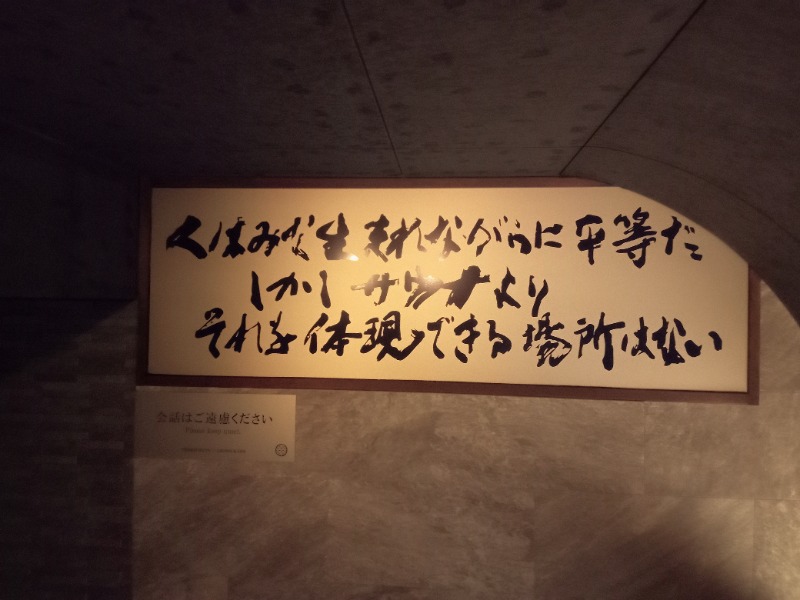 人はみな生まれながらに平等だ
しかしサウナより
それを体現できる場所はない
会話はご遠慮ください